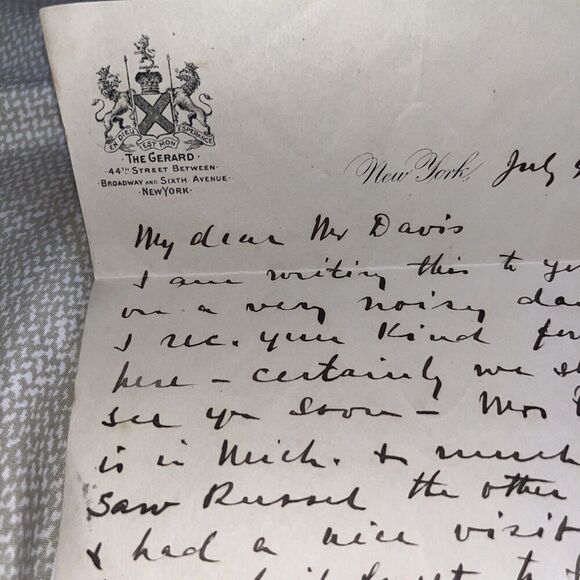 EN DIEU EST MON ESPERANCE
THE GERARD
44TH STREET BETWEEN
BROADWAY AND SIXTH AVENUE
NEW YORK.
New York, July
My dear Mr Davis
I am writing this to
on a very noisy
I rec. your kind
here - certainly we
see you soon - Mrs
is in Mich. & much
saw Russel the other
& had a nice visit